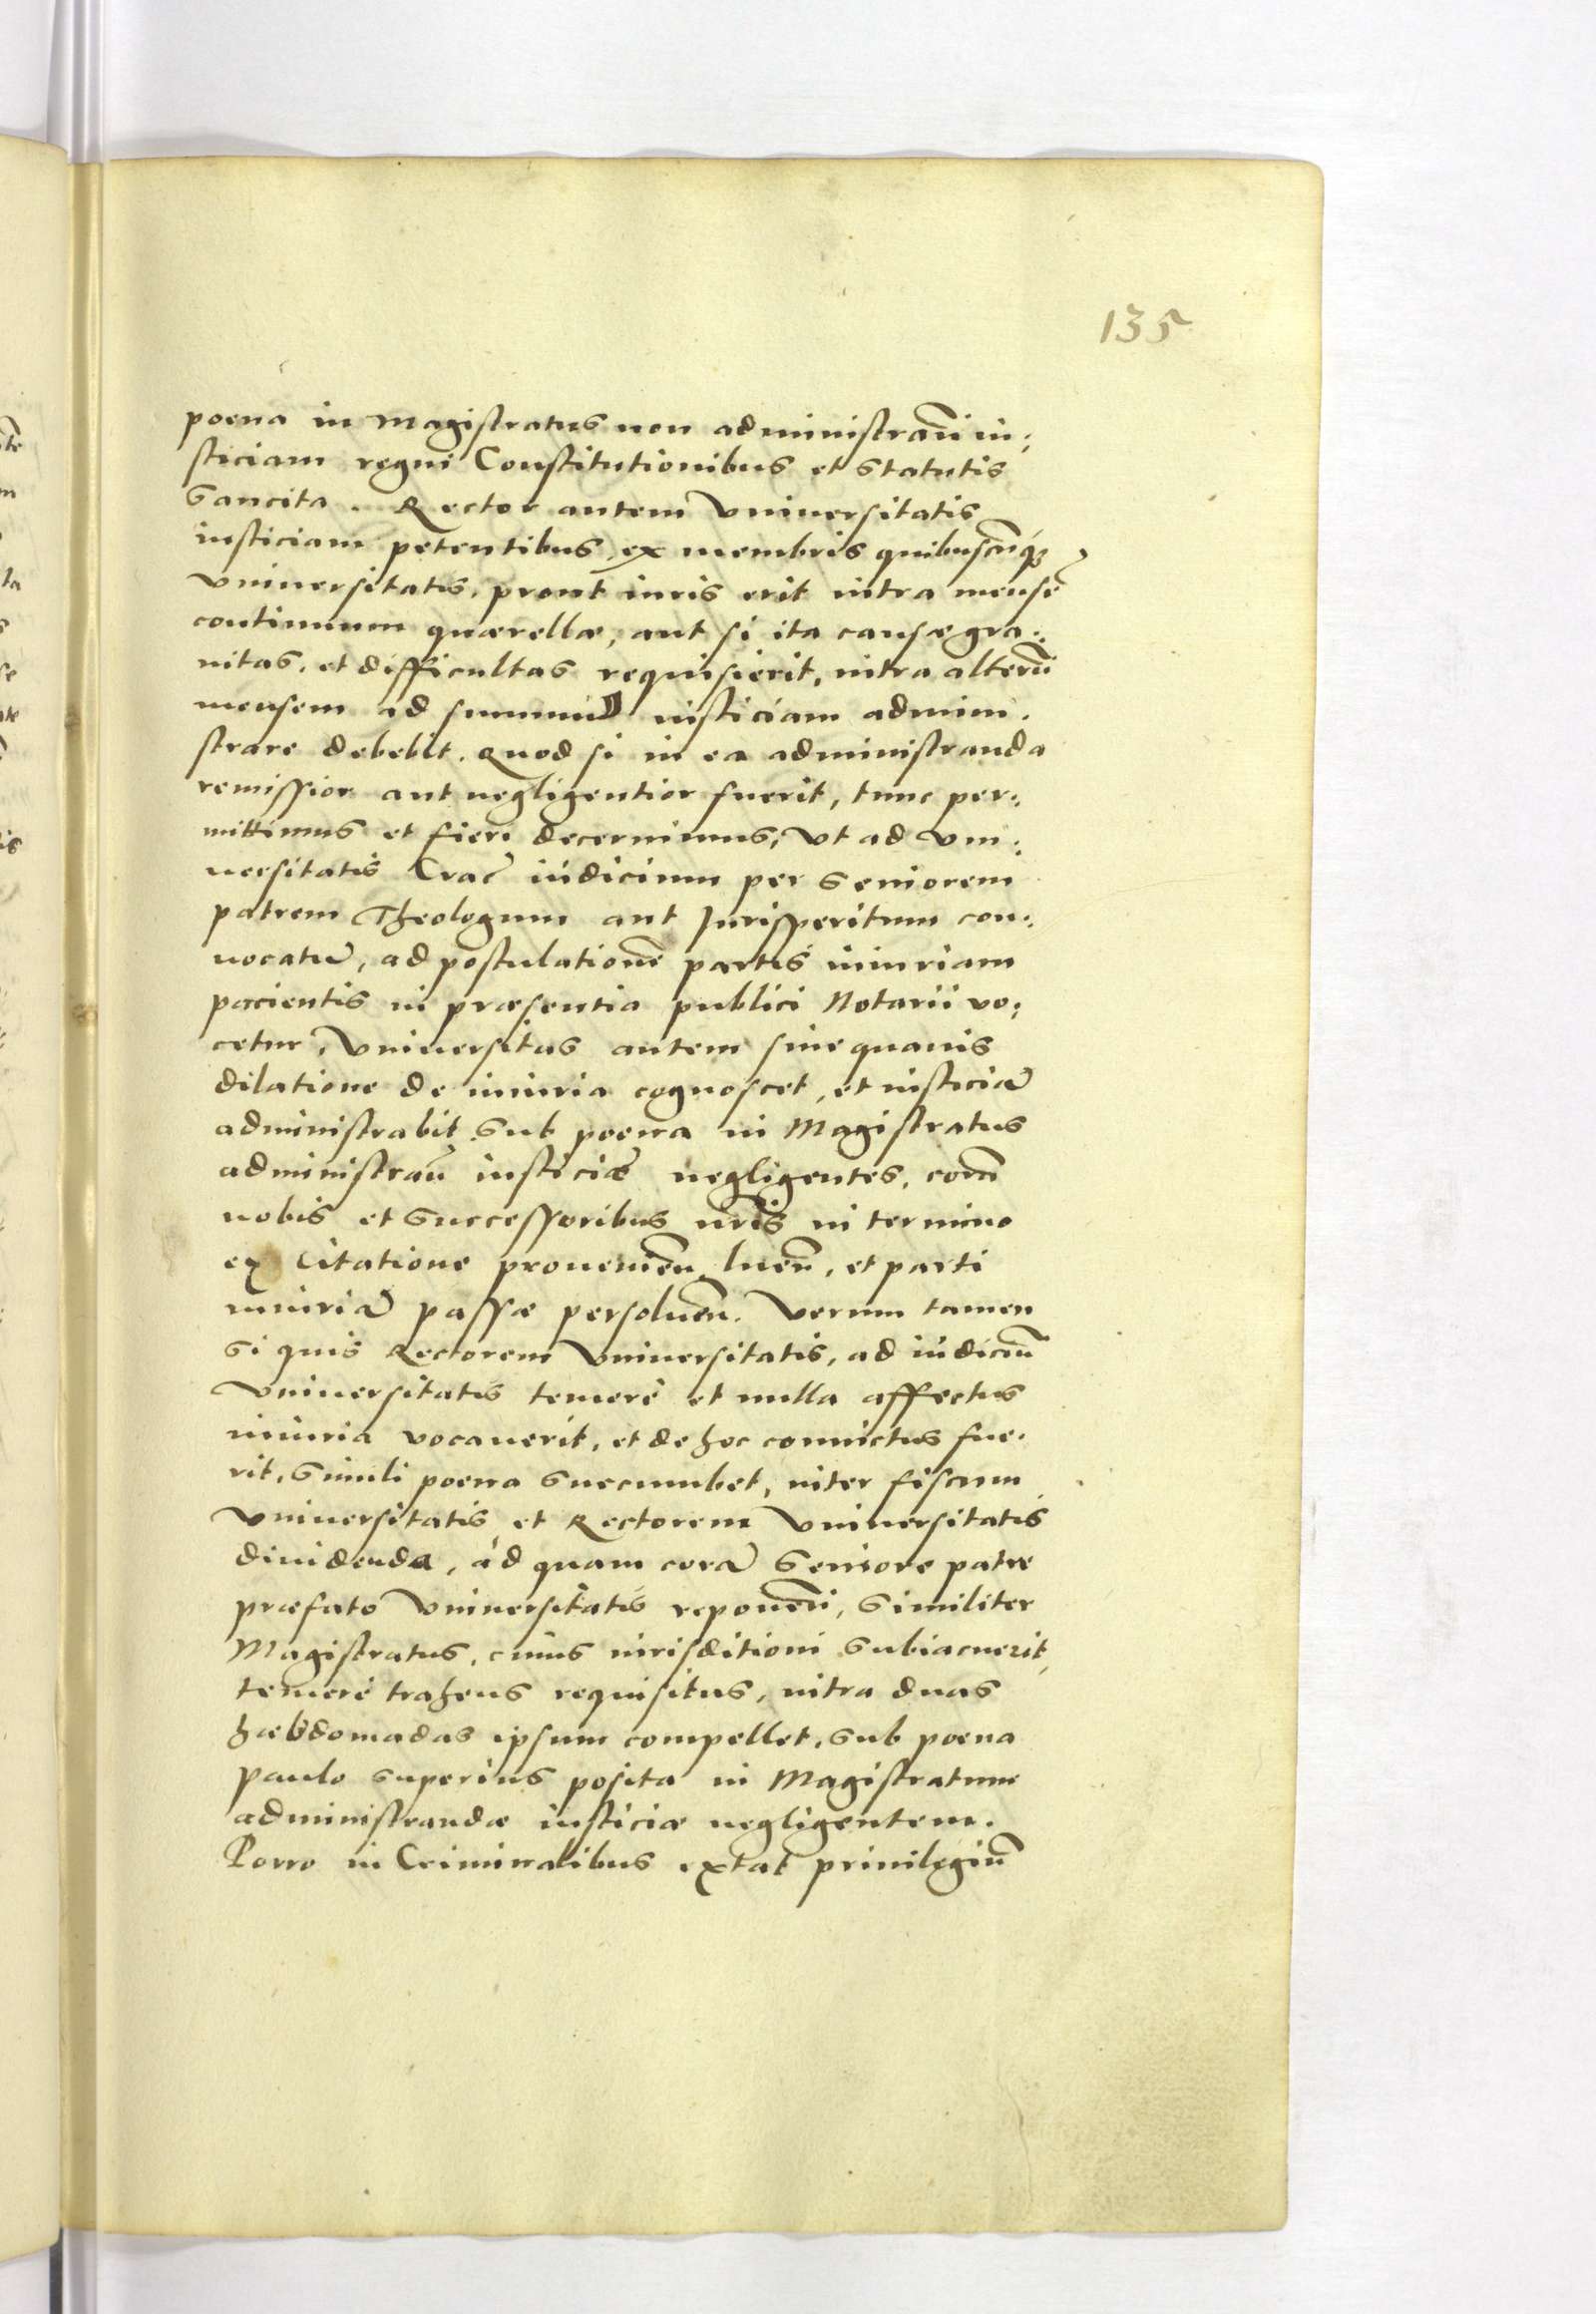 135
poena in Magistratus non administrañ iu⸗
sticiam regni Constitutionibus et Statutis
Sancita. Rector autem Vniuersitatis
iusticiam petentibus, ex membris quibuscũq3
Vniuersitatis, prout iuris erit intra mensẽ
continuum quærellæ, aut si ita causæ gra⸗
uitas, et difficultas requisierit, intra alterũ
mensem ad summũ iusticiam admini⸗
strare debebit. Quod si in ea administranda
remissior aut negligentior fuerit, tunc per⸗
mittimus et fieri decernimus, vt ad Vni⸗
uersitatis Crac̃ iúdicium per Seniorem
patrem Theologum aut Jurisperitum con⸗
uocatũ, ad postulationẽ partis iniuriam
pacientis in præsentia publici Notarii vo⸗
cetur, Vniuersitas autem sine quauis
dilatione de iniuria cognoscet, et iusticiã
administrabit sub poena in Magistratus
administrañ iusticiæ negligentes, corã
nobis et Successoribus nr̃is in termino
ex Citatione prouenieñ lueñ, et parti
iniuriã passæ persolueñ. Verum tamen
Si quis Rectorem Vniuersitatis, ad iúdiciũ
Vniuersitatis temerè et nulla affectus
iniuria vocauerit, et de hoc conuictus fue⸗
rit, Simili poena Succumbet, inter fiscum
Vniuersitatis et Rectorem Vniuersitatis
diuidenda, ad quam corã Seniore patre
præfato Vniuersitatis reponeñ, Similiter
Magistratus, cuius iurisditioni Subiacuerit,
temerè trahens requisitus, intra duas
hæbdomadas ipsum compellet, sub poena
paulo superius posita in Magistratum
administrandæ iusticiæ negligentem.
Porro in Criminalibus extat priuilegiũ